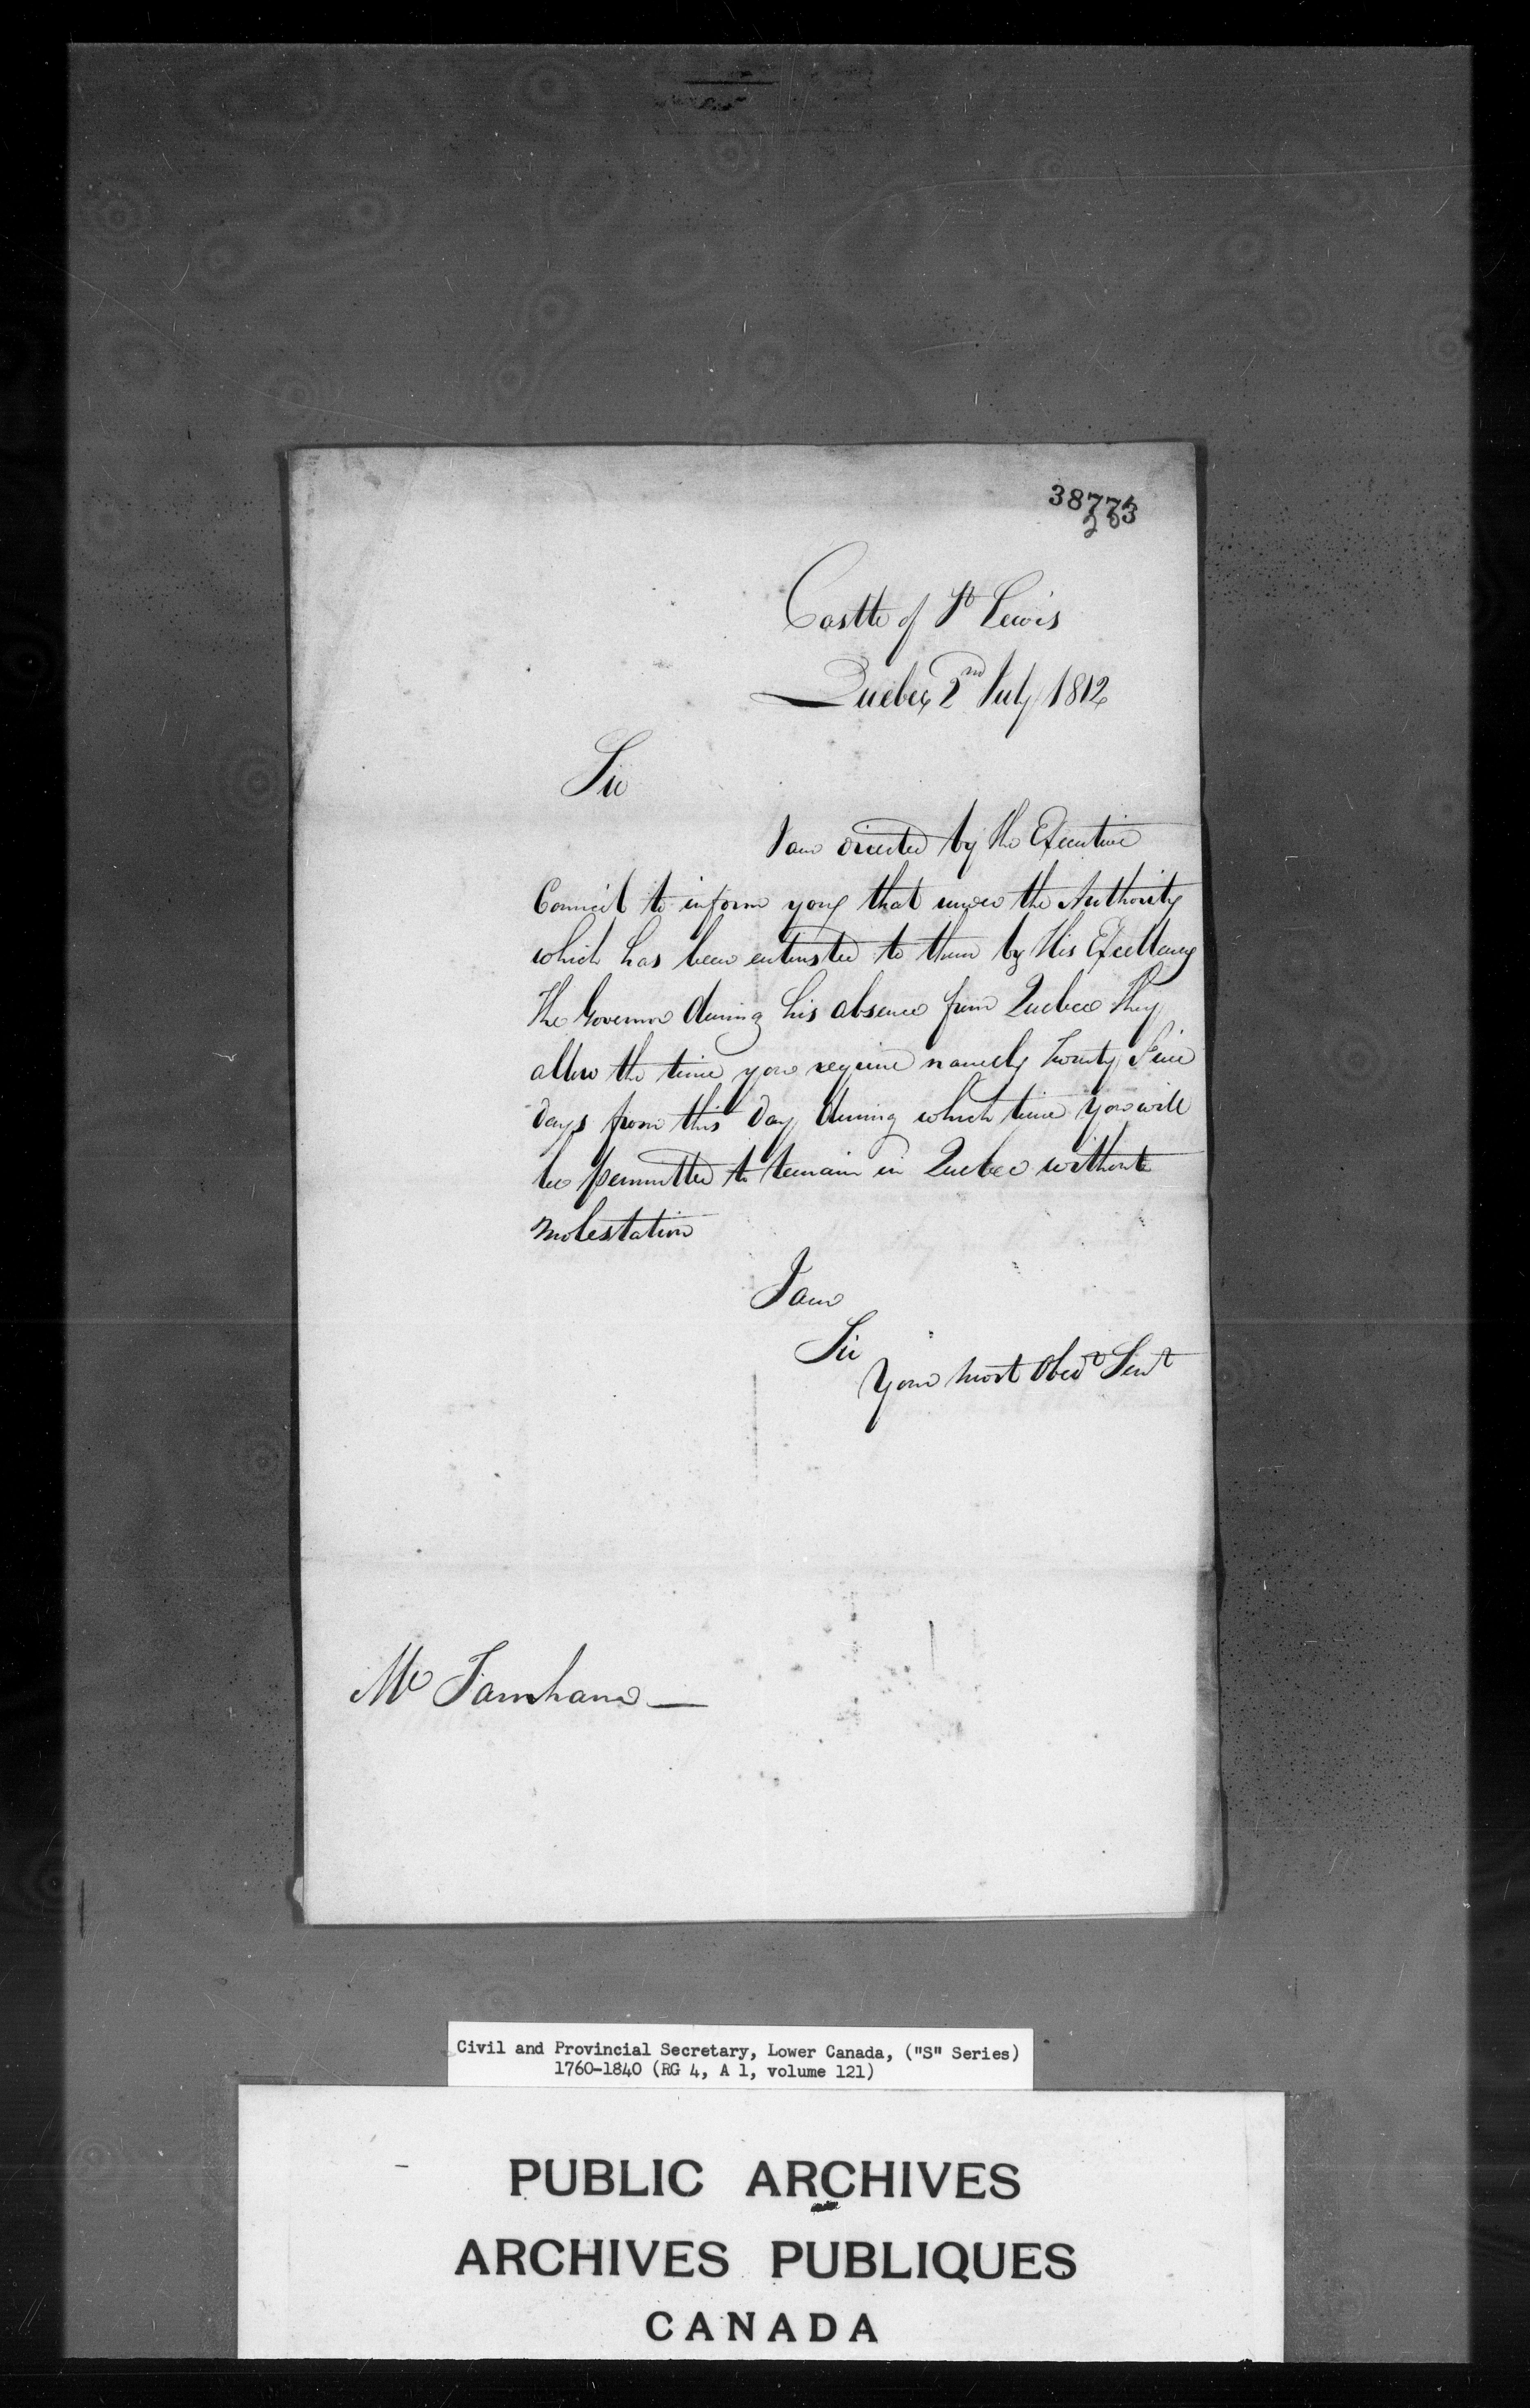 38773
203
Castle of St Lewis
Quebec 2nd July 1812
Sir
I am directed by the Executive
Council to inform you that under the Authority
which has been entrusted to them by His Excellency
The Governor during his absence from Quebec they
allow the time you require namely Twenty Five
days from this day during which time you will
be permitted to remain in Quebec without
molestation
I am
Sir
Your most Obedt Servt
Mr Farnham —
Civil and Provincial Secretary, Lower Canada, ("S" Series)
1760-1840 (RG 4, A 1, volume 121)
PUBLIC ARCHIVES
ARCHIVES PUBLIQUES
CANADA